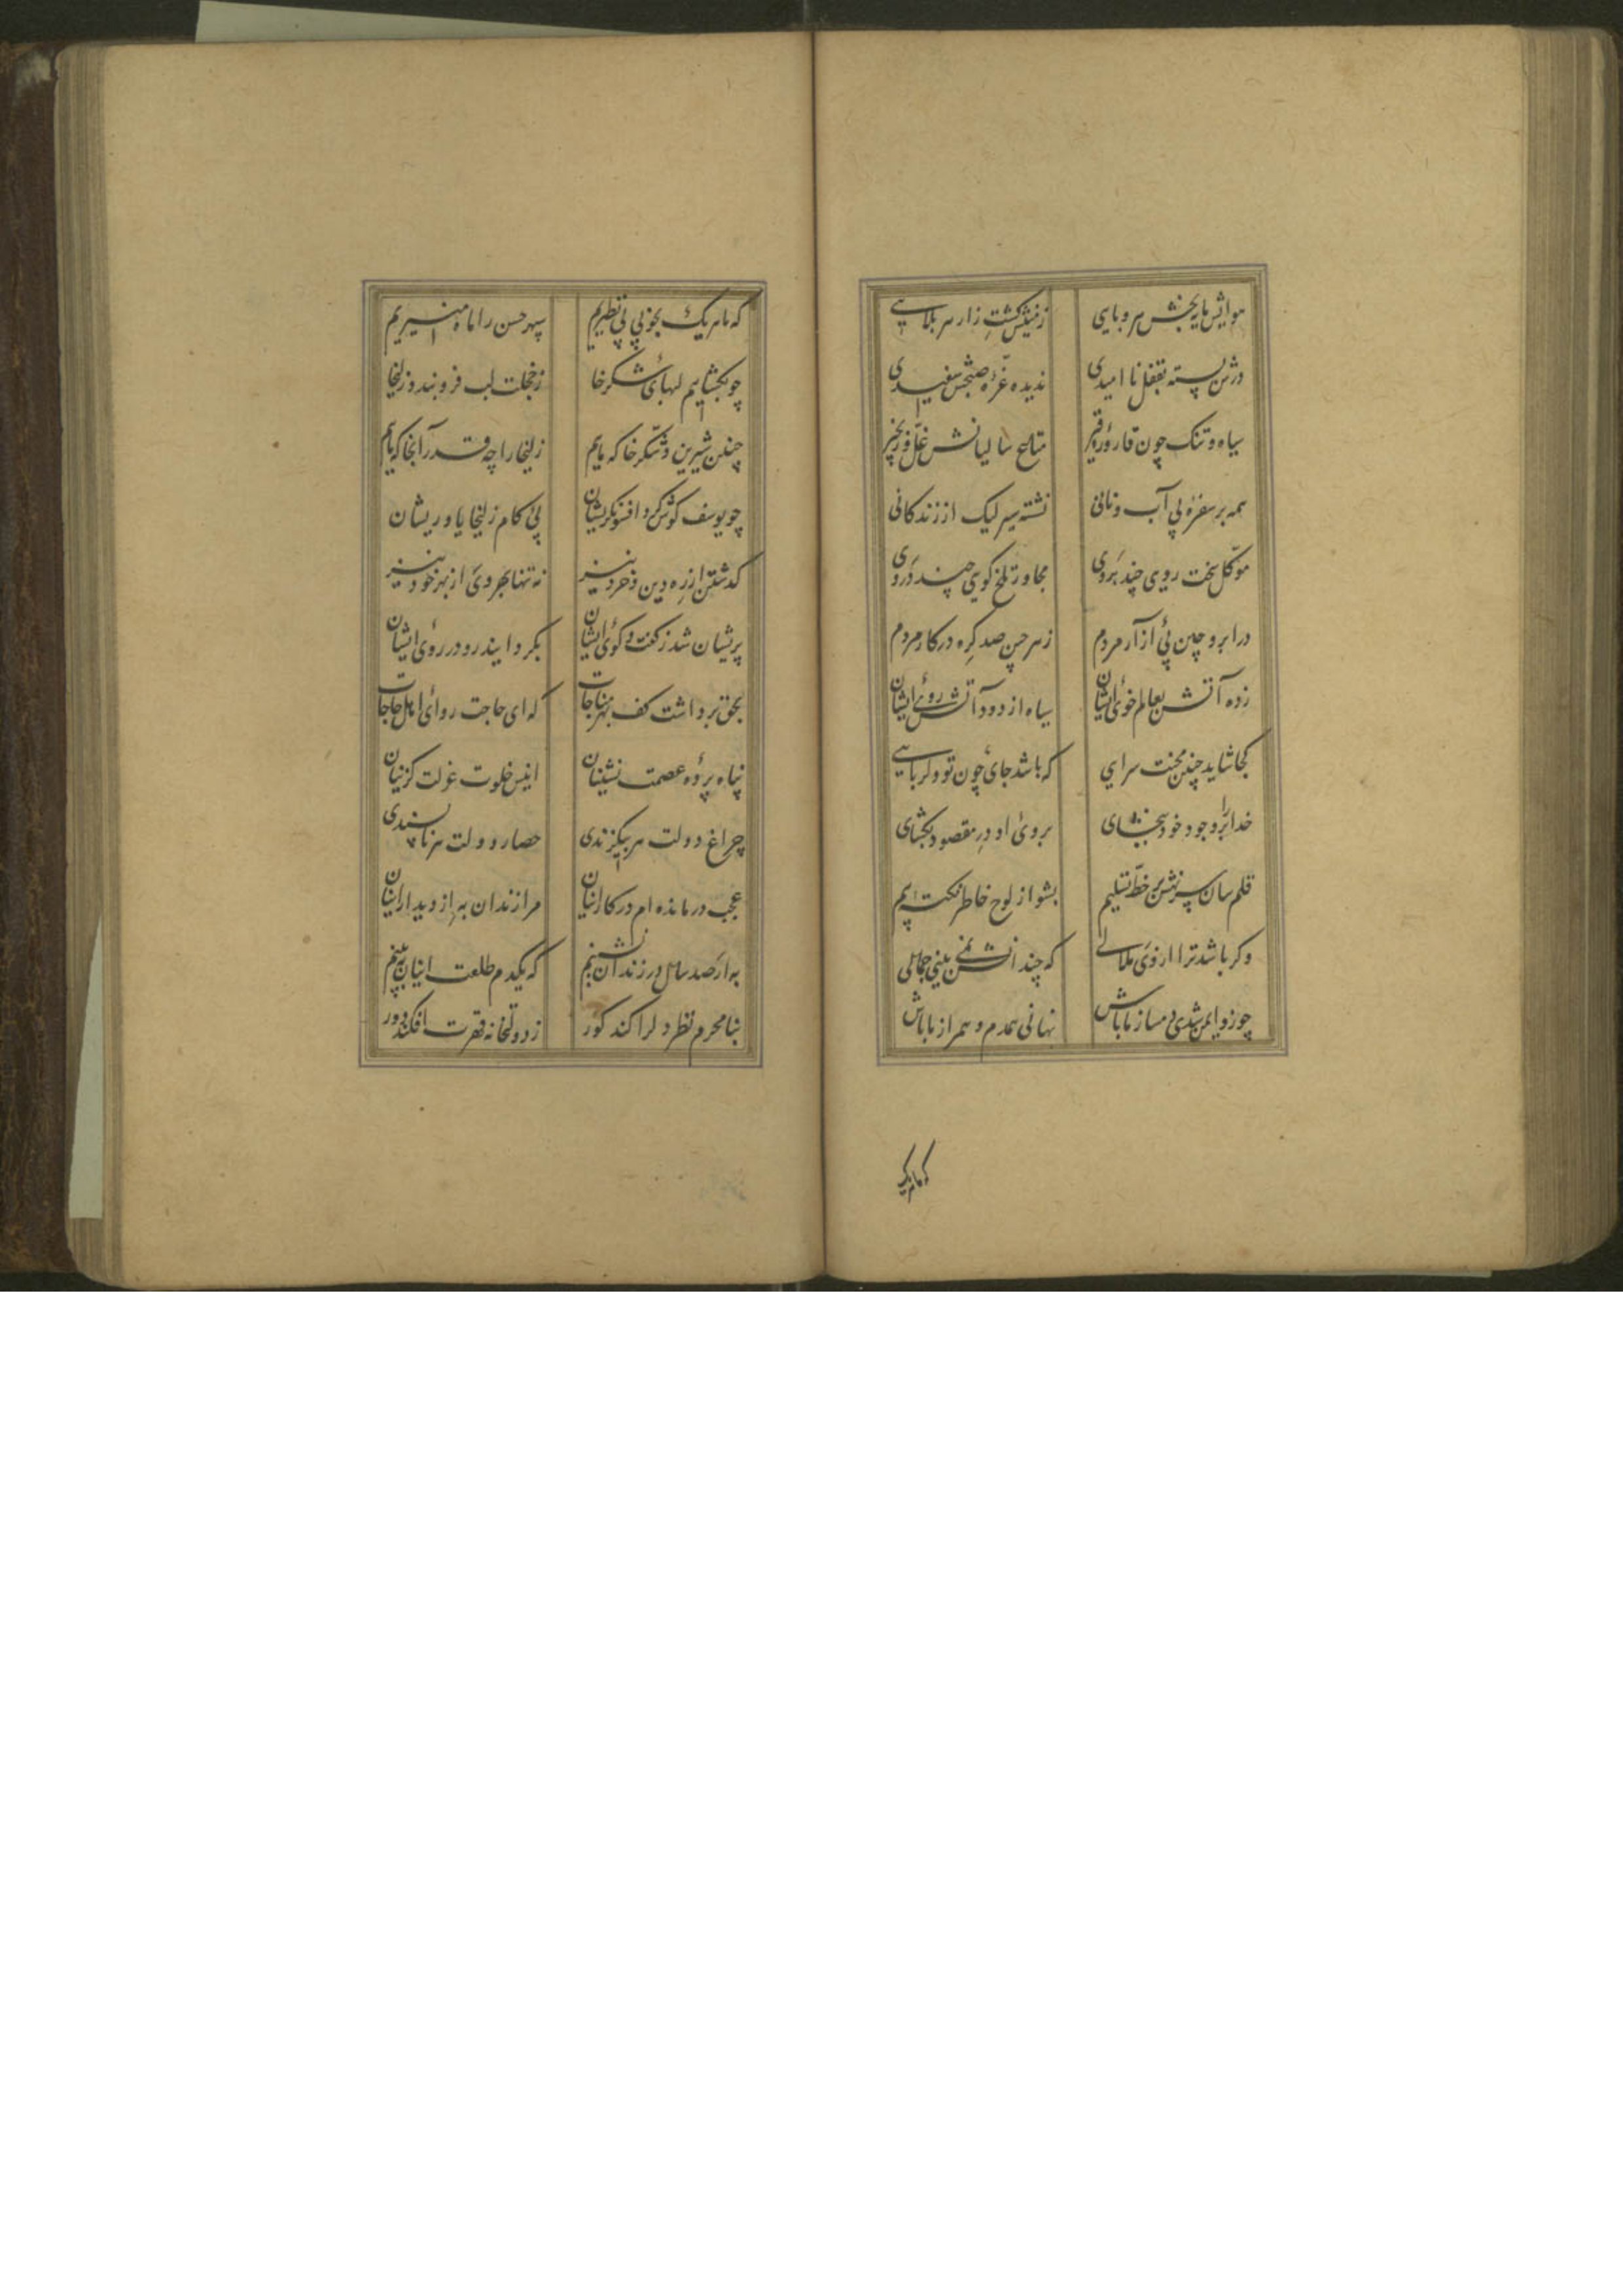 هوایش مایه‌بخش هر وبایی زمینش کشت زار هر بلایی
درش بسته بقفل ناامیدی ندیده غره صبحش سفیدی
سیاه و تنک چون قاروره قیر متاع ساکنانش غل و زنجیر
همه بر سفره بی آب و نانی نشسته سیر لیک از زندکانی
موکل سخت رویی چند بروی مجاور تلخ کویی چند دروی
در ابرو چین پی آزار مردم زهر چین صد کره در کار مردم
زده آتش بعالم خوی ایشان سیاه از دود آتش روی ایشان
کجا شاید چنین محنت سرایی که باشد جای چون تو دلربایی
خدا را بر وجود خود ببخشای بروی او در مقصود بکشای
قلم سان سر بنه بر خط تسلیم بشو از لوح خاطر نکته بیم
وکر باشد ترا از وی ملالی که چندانش نمی بینی جمالی
چو زو ایمن شدی دمساز ما باش نهانی همدم و همراز ما باش
که ما هر یک
که ما هر یک بخوبی بی نظیریم سپهر حسن را ماه منیریم
چو بکشاییم لبهای شکرخا زخجلت لب فرو بندد زلیخا
چنین شیرین و شکرخا که ماییم زلیخا را چه قدر آنجا که ماییم
چو یوسف کوش کرد افسونکریشان پی کام زلیخا یاوریشان
کذشتند از ره دین و خرد نیز نه تنها بهر وی از بهر خود نیز
پریشان شد ز کفت و کوی ایشان بکردانید رو در روی ایشان
بحق برداشت کف بهر مناجات که ای حاجت روای اهل حاجات
پناه پرده عصمت نشینان انیس خلوت عزلت کزینان
چراغ دولت هر بیکزندی حصار دولت هر ناپسندی
عجب درمانده ام در کار اینان مرا زندان به از دیدار اینان
به ار صد سال در زندان نشینم که یکدم طلعت اینان ببینم
بنامحرم نظر دلرا کند کور ز دولتخانه قربت افکند دور